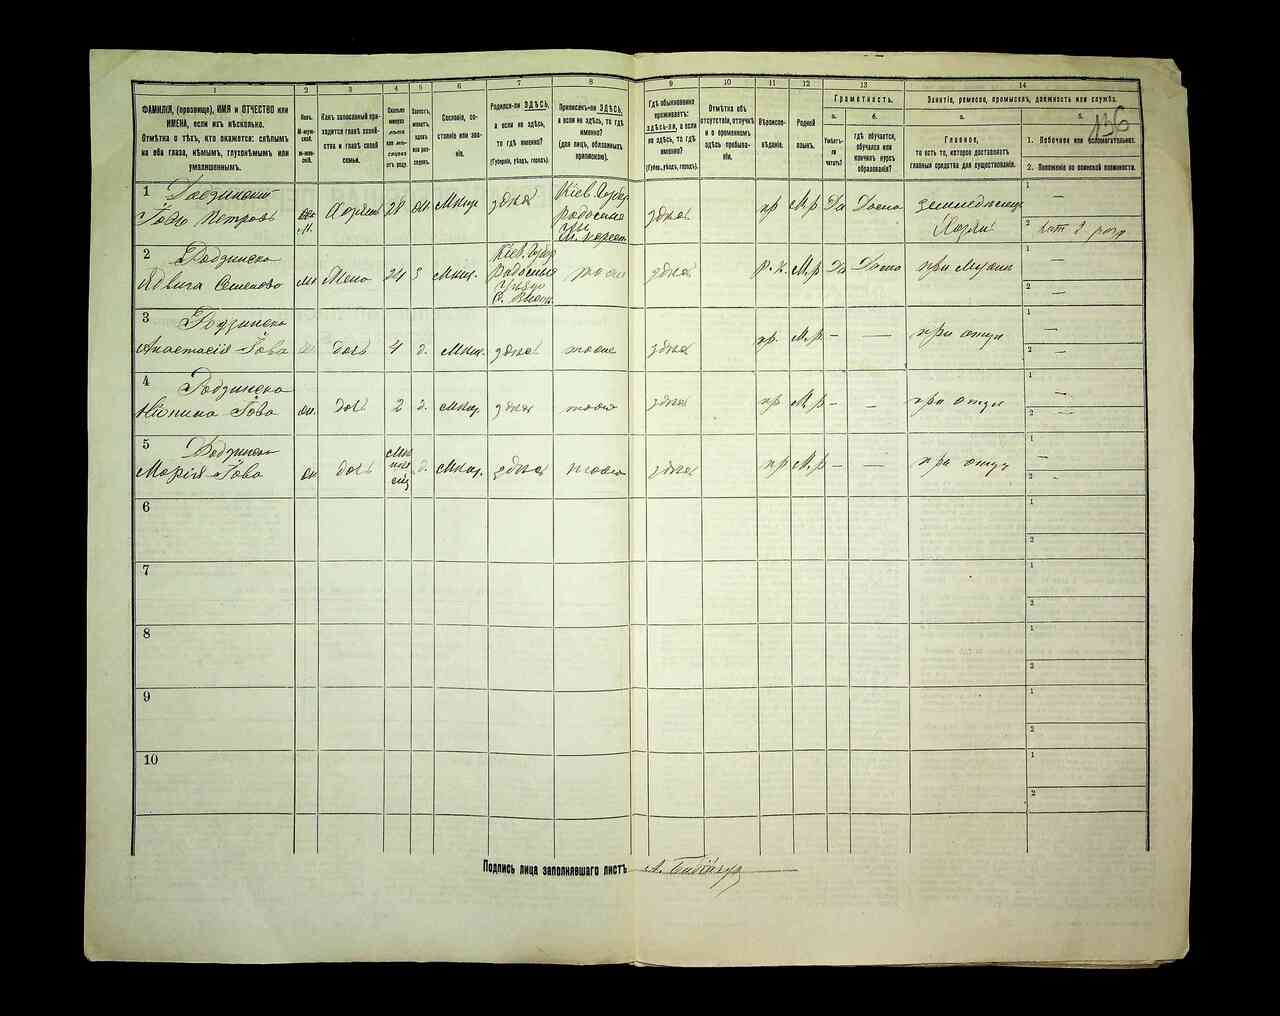 1 2 3 4 5 6 7 8 9 10 11 12 13 14
ФАМИЛІЯ, (прозвище), ИМЯ и ОТЧЕСТВО или ИМЕНА, если ихъ нѣсколько.
Отмѣтка о тѣхъ, кто окажется: слѣпымъ на оба глаза, нѣмымъ, глухонѣмымъ или умалишеннымъ.
Полъ.
М-мужской.
Ж-женскій.
Какъ записанный приходится главѣ хозяйства и главѣ своей семьи.
Сколько минуло лѣтъ или мѣсяцевъ отъ роду.
Холостъ, женатъ, вдовъ или разведенъ.
Сословіе, состояніе или званіе.
Родился-ли ЗДѢСЬ, а если не здѣсь, то гдѣ именно?
(Губернія, уѣздъ, городъ).
Приписанъ-ли ЗДѢСЬ, а если не здѣсь, то гдѣ именно?
(для лицъ, обязанныхъ припискою).
Гдѣ обыкновенно проживаетъ: здѣсь-ли, а если не здѣсь, то гдѣ именно?
(Губерн., уѣздъ, городъ).
Отмѣтка объ отсутствіи, отлучкѣ и о временномъ здѣсь пребываніи.
Вѣроисповѣданіе.
Родной языкъ.
Грамотность.
а.
Умѣетъ-ли читать?
б.
гдѣ обучается, обучался или кончилъ курсъ образованія?
Занятіе, ремесло, промыселъ, должность или служба.
а.
Главное,
то есть то, которое доставляетъ главныя средства для существованія.
б.
136
1. Побочное или вспомогательное.
2. Положеніе по воинской повинности.
1 Родзинский
Іовъ Петровъ Хозяинъ 28 Мѣщ. здѣсь Кіев. Губер. здѣсь пр М.р Да Дома
Хозяинъ
1 —
2
2 Родзинска
Ядвига Семенова Жена 24 Мѣщ. Кіев. Губер. тоже здѣсь Р.К. М.р Да Дома при Мужѣ
1 —
2 —
3 Родзинска
Анастасія Іова дочь 4 д. Мѣщ. здѣсь тоже здѣсь пр. М.р — — при отцѣ
1 —
2 —
4 Родзинска
Іова дочь 2 д. Мѣщ. здѣсь тоже здѣсь пр М.р — — при отцѣ
1 —
2 —
5 Родзинска
Марія Іова дочь д. Мѣщ. здѣсь тоже здѣсь пр М.р — — при отцѣ
1 —
2 —
6 1 2
7 1 2
8 1 2
9 1 2
10 1 2
Подпись лица заполнявшаго листъ